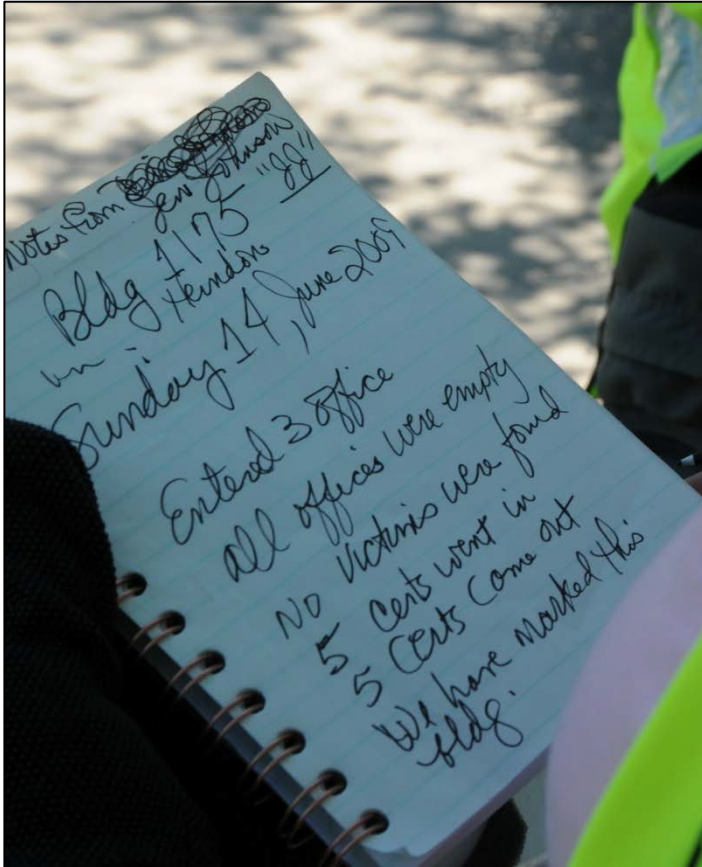 Notes from
Jew Johnson
Bldg 1175 "JJ"
in Herndons
Sunday 14, June 2009
Entered 3 office
all offices were empty
No victims were found
5 Certs went in
5 Certs Come out
We have marked this
bldg.